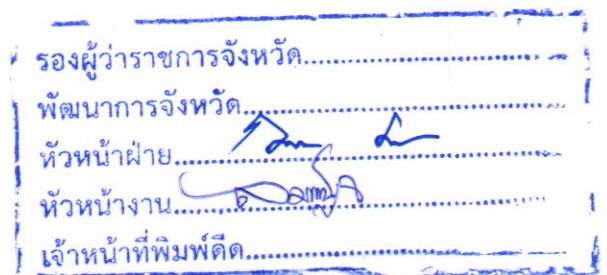 รองผู้ว่าราชการจังหวัด..............................
พัฒนาการจังหวัด..............................
หัวหน้าฝ่าย..............................
หัวหน้างาน..............................
เจ้าหน้าที่พิมพ์ดีด..............................